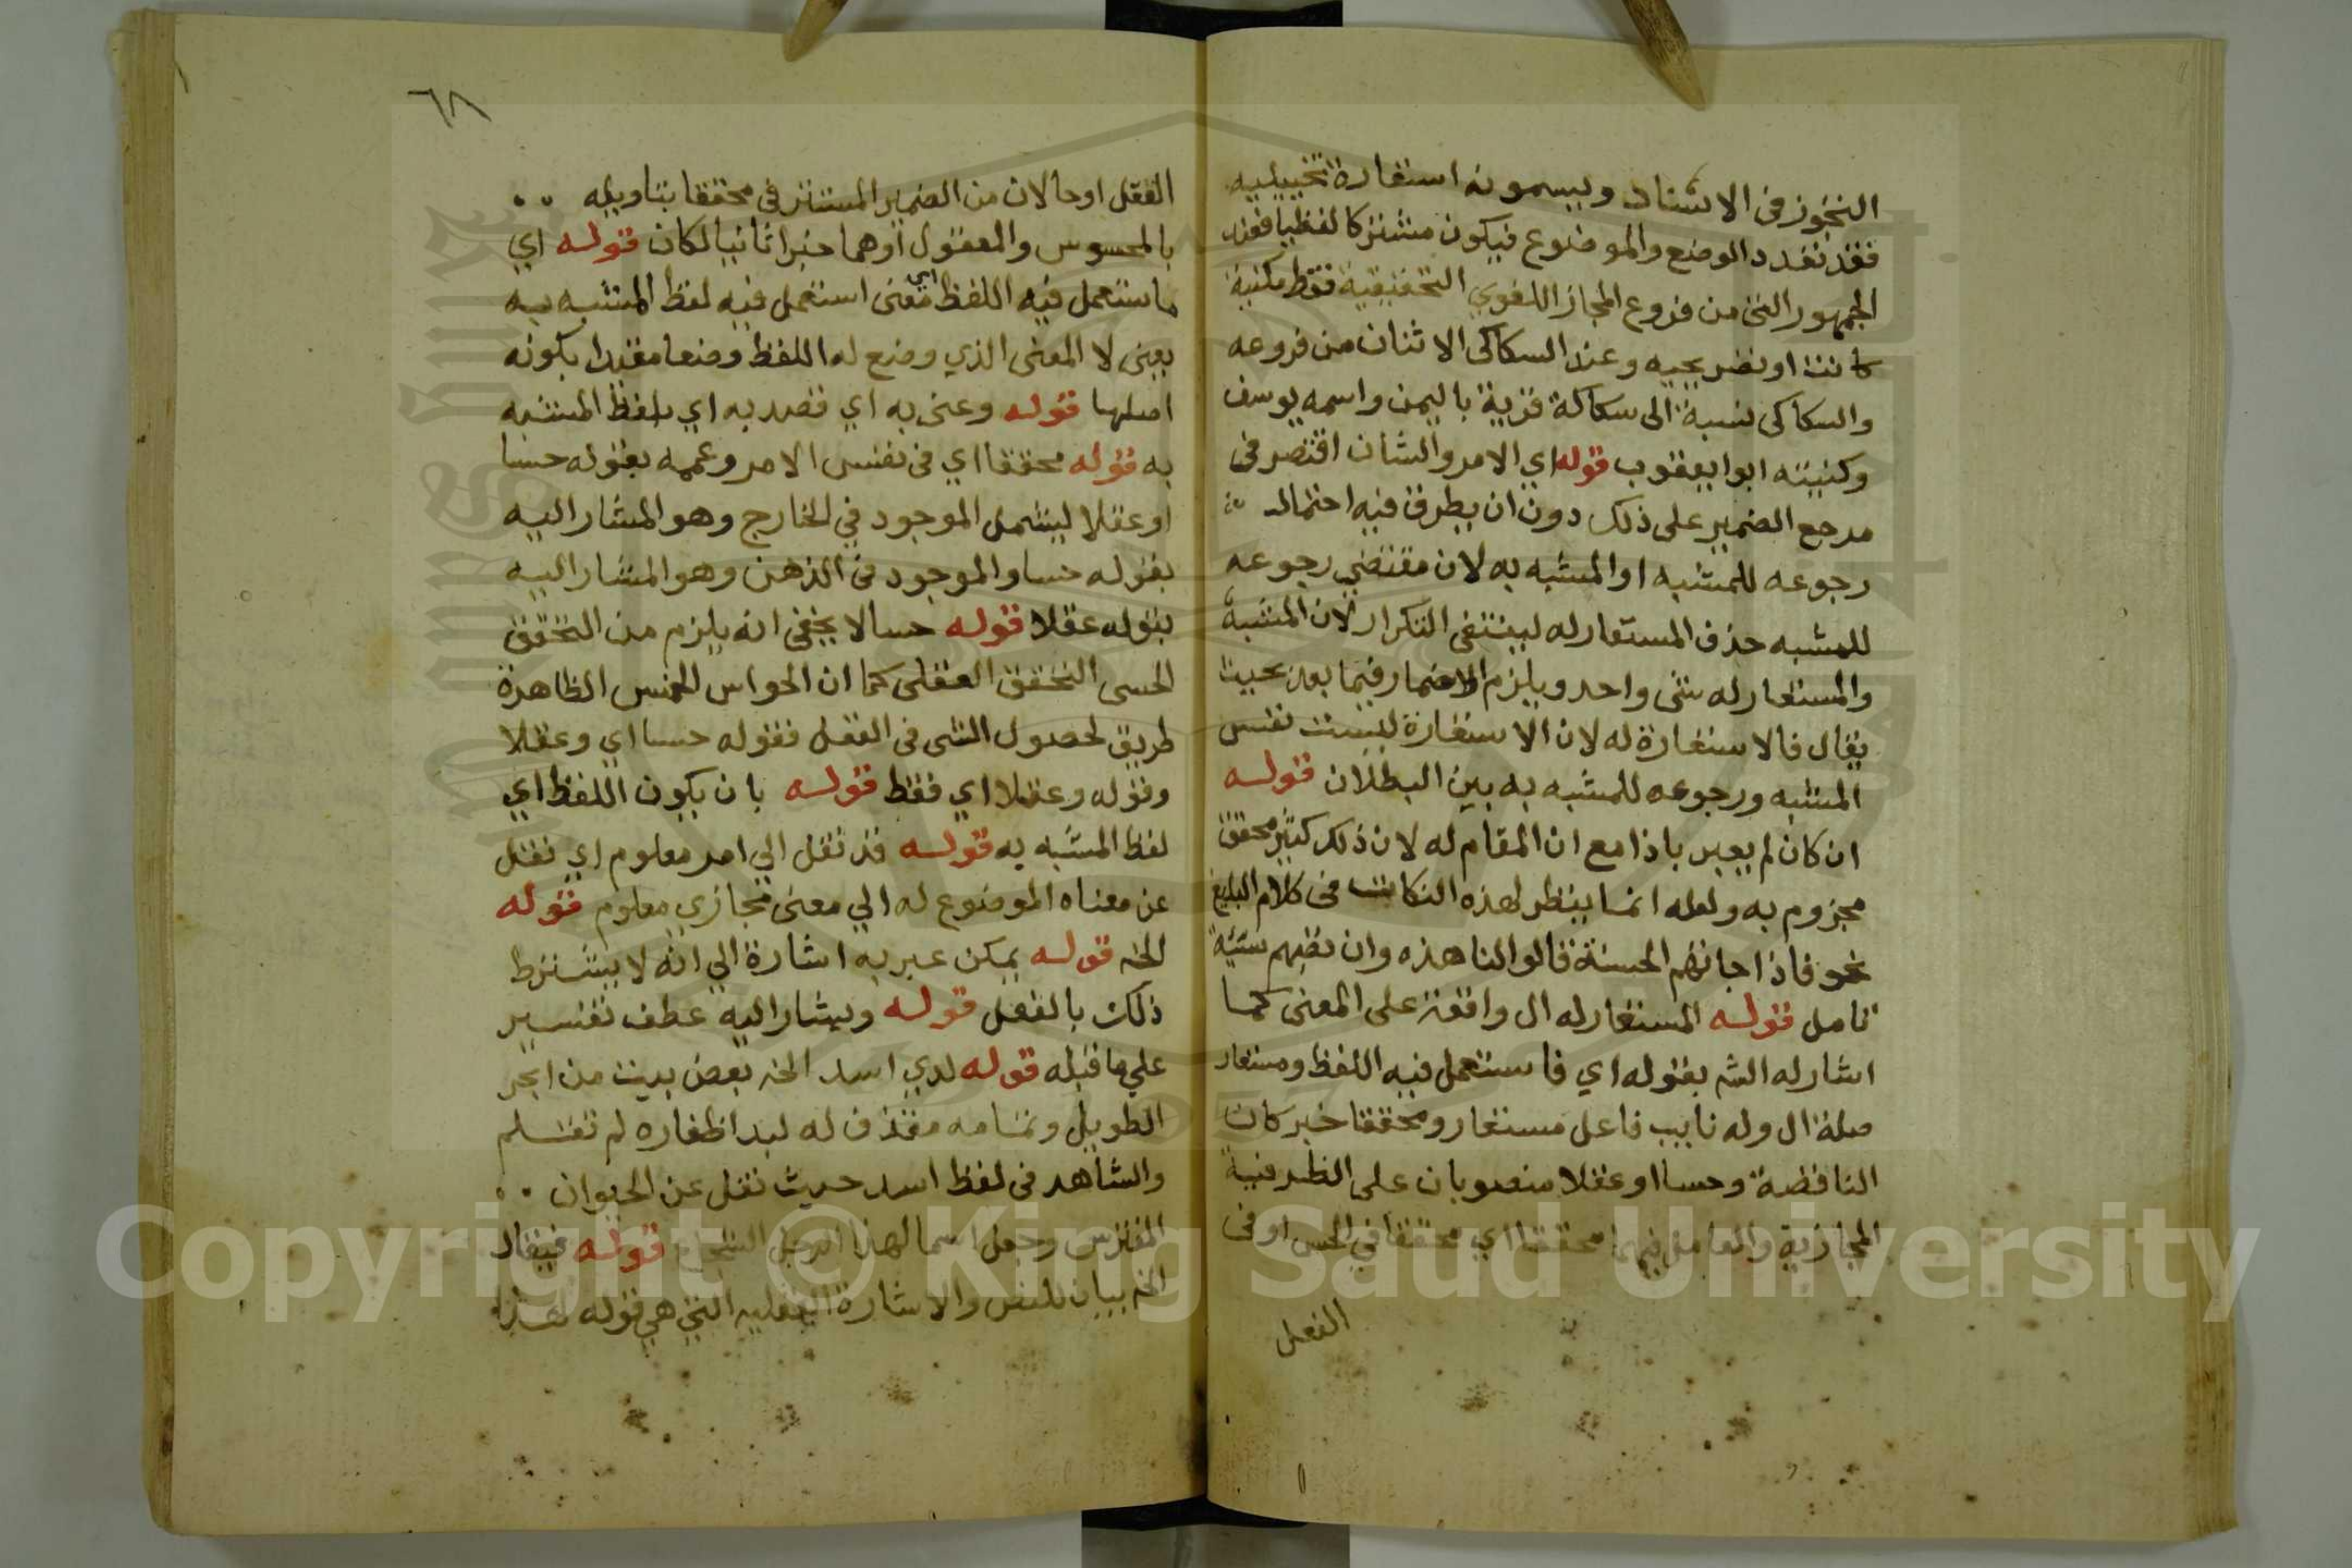 التجوز فى الاسناد ويسمونه استعارة تخييليه
فقد تعدد الوضع والموضوع فيكون مشتركا لفظيا فعند
الجمهور التى من فروع المجاز اللغوي التحقيقية فقط مكنية
كانت او تصريحيه وعند السكاكى الاثنان من فروعه
والسكاكى نسبة الى سكاكة قرية باليمن واسمه يوسف
وكنيته ابوا يعقوب قوله اي الامر والشان اقتصر فى
مرجع الضمير على ذلك دون ان يطرق فيه احتمال
رجوعه للمشبه او المشبه به لان مقتضي رجوعه
للمشبه حذف المستعار له لينتفى التكرار لان المشبه
والمستعار له شئ واحد ويلزم الاضمار فيما بعد بحيث
يقال فالاستعارة له لان الاستعارة ليست نفس
المشبه ورجوعه للمشبه به بين البطلان قوله
ان كان لم يعبر باذا مع ان المقام له لان ذلك كثير محقق
مجزوم به ولعله انما ينظر لهذه النكات فى كلام البليغ
نحو فاذا جاتهم الحسنة قالوا لنا هذه وان تصبهم سيئة
تامل قوله المستعار له ال واقعة على المعنى كما
اشار له الشه بقوله اي فا ستعمل فيه اللفظ ومستعار
صلة ال وله نايب فاعل مستعار ومحققا خبر كان
الناقصة وحسا او عقلا منصوبان على الظرفية
المجازية والعامل فيهما محققا اي محققا في الحس او فى
الفعل
٦٨
العقل او حالان من الضمير المستتر فى محققا بتاويله
بالمحسوس والمعقول او هما خبرا ثانيا لكان قوله اي
ما ستعمل فيه اللفظ اي معنى استعمل فيه لفظ المشبه به
يعنى لا المعنى الذي وضع له اللفظ وضعا مقيدا بكونه
اصلها قوله وعنى به اي قصد به اي بلفظ المشبه
به قوله محققا اي فى نفس الامر وعممه بقوله حسا
او عقلا ليشمل الموجود في الخارج وهو المشار اليه
بقوله حسا والموجود فى الذهن وهو المشار اليه
بقوله عقلا قوله حسا لا يخفى انه يلزم من التحقق
الحسى التحقق العقلى كما ان الحواس الخمس الظاهرة
طريق لحصول الشى فى العقل فقوله حسا اي وعقلا
وقوله وعقلا اي فقط قوله بان يكون اللفظ اي
لفظ المشبه به قوله قد نقل الي امر معلوم اي نقل
عن معناه الموضوع له الي معنى مجازي معلوم قوله
الخ قوله يمكن عبر به اشارة الي انه لا يشترط
ذلك بالفعل قوله ويشار اليه عطف تفسير
علي ما قبله قوله لدي اسد الخ بعض بيت من ابحر
الطويل وتمامه مقذف له لبد اظفاره لم تقلم
والشاهد فى لفظ اسد حيث نقل عن الحيوان
المفترس وجعل اسما لهذا الرجل الشجاع قوله فيقال
الخ بيان للنص والاشارة العقليه التي هي قوله لهذا